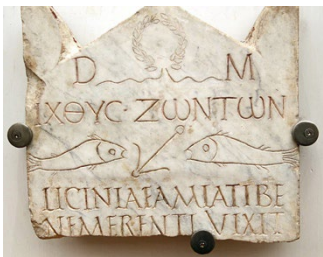 D M
ΙΧΘΥC ΖΩΝΤΩΝ
LICINIAE AMIATI BE
NEMERENTI VIXIT